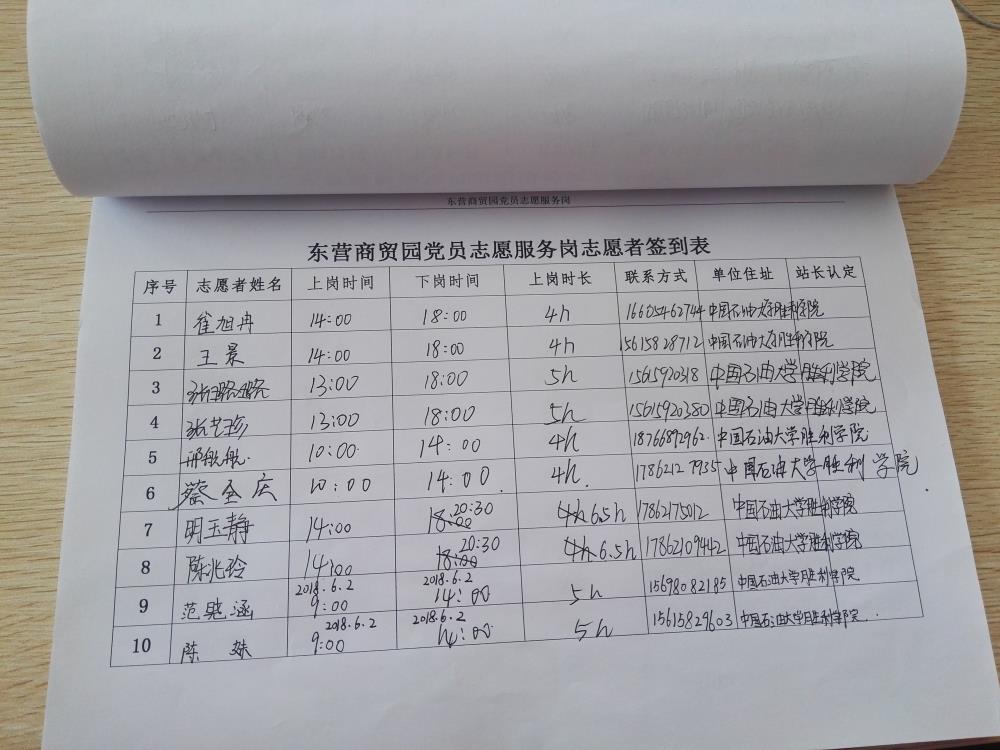 东营商贸园党员志愿服务岗
东营商贸园党员志愿服务岗志愿者签到表
序号 志愿者姓名 上岗时间 下岗时间 上岗时长 联系方式 单位住址 站长认定
1 崔旭冉 14:00 18:00 4h 16605462744 中国石油大学胜利学院
2 王晨 14:00 18:00 4h 15615828712 中国石油大学胜利学院
3 张璐璐 13:00 18:00 5h 15615920318 中国石油大学胜利学院
4 张艺珍 13:00 18:00 5h 15615920380 中国石油大学胜利学院
5 邢航航 10:00 14:00 4h 18766892962 中国石油大学胜利学院
6 蔡全庆 10:00 14:00 4h 17862127935 中国石油大学胜利学院
7 明玉静 14:00 18:00 20:30 4h 6.5h 17862175012 中国石油大学胜利学院
8 陈兆玲 14:00 18:00 20:30 4h 6.5h 17862109442 中国石油大学胜利学院
9 范晓涵 2018.6.2 9:00 2018.6.2 14:00 5h 15698082185 中国石油大学胜利学院
10 陈姝 2018.6.2 9:00 2018.6.2 14:00 5h 15615829603 中国石油大学胜利学院